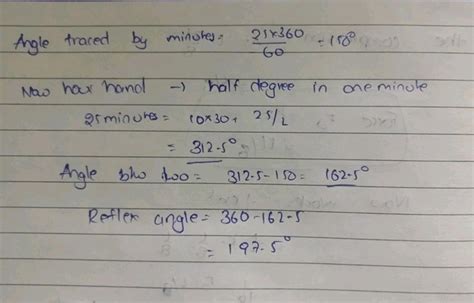 Angle traced by minutes = 25×360/60 = 150°
Now hour hand → half degree in one minute
25 minutes = 10×30 + 25/2
= 312.5°
Angle b/w two = 312.5 - 150 = 162.5°
Reflex angle = 360 - 162.5
= 197.5°